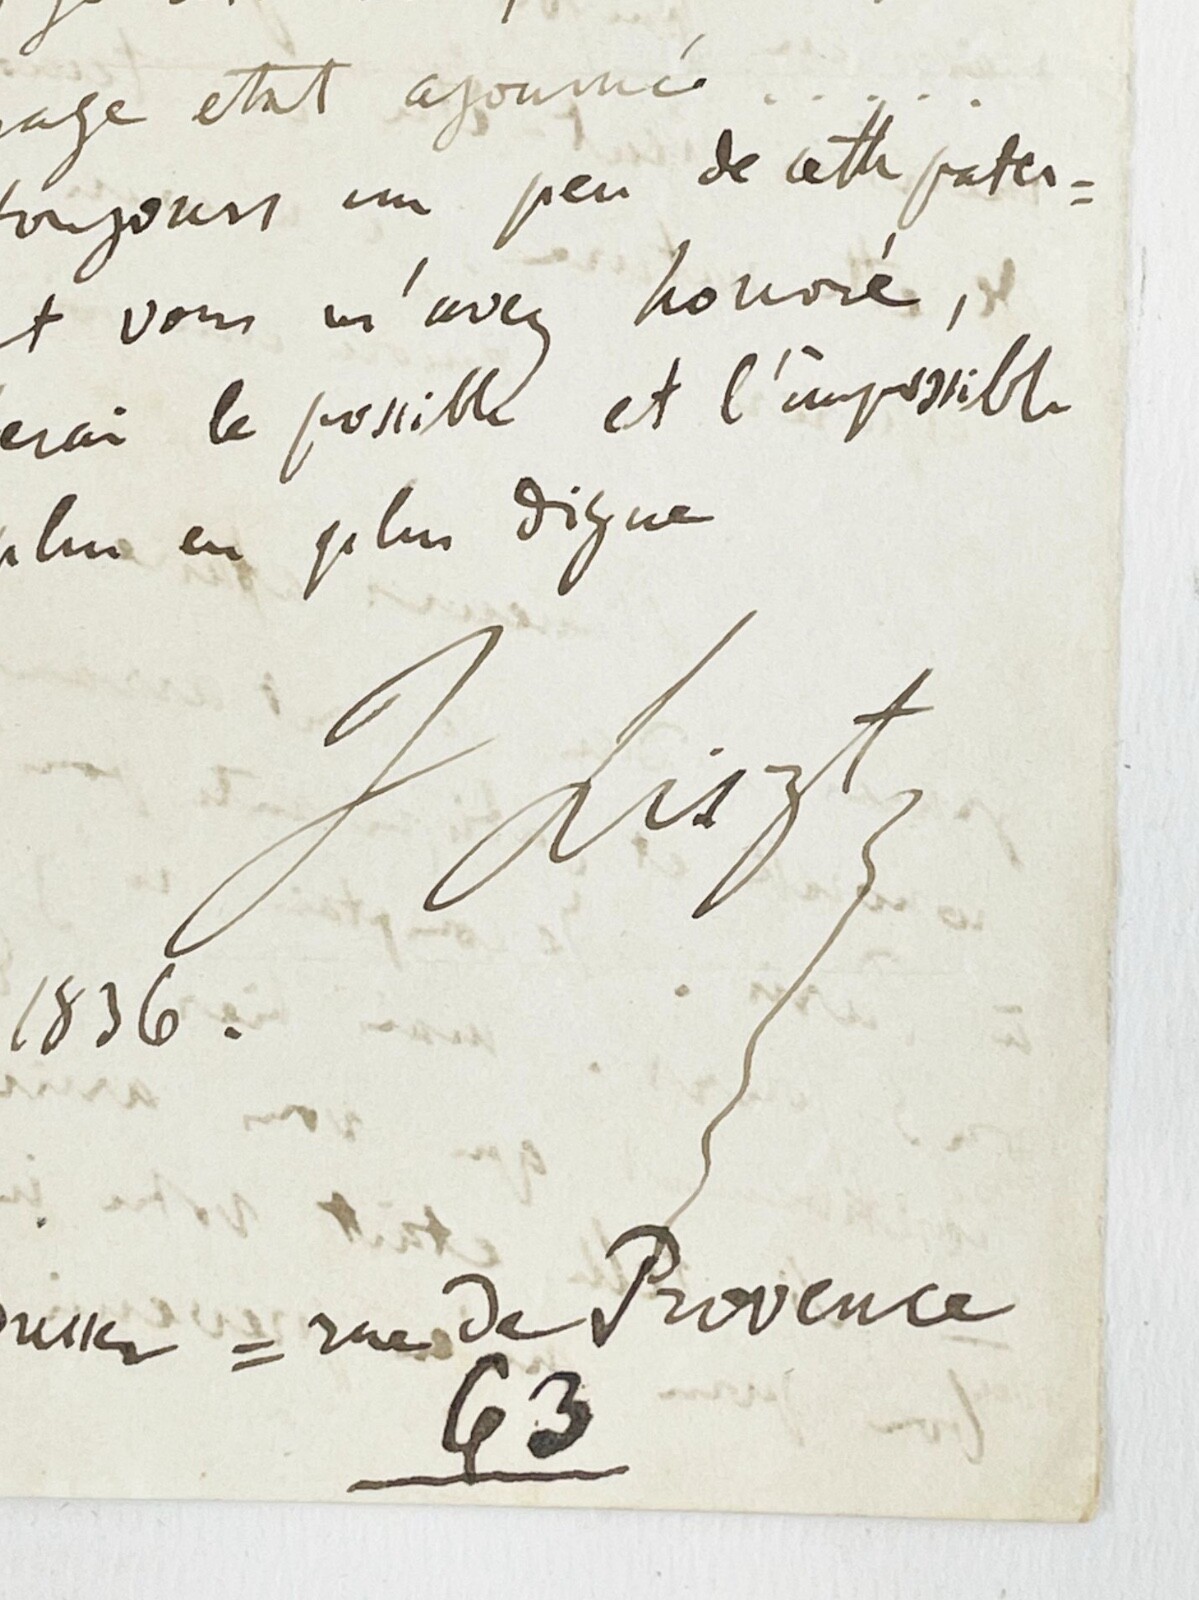 etat ajourné .....
toujours un peu de cette pater=
t vous m'avez honoré,
erai le possible et l'impossible
plus en plus digne
F Liszt
1836.
= rue de Provence
63